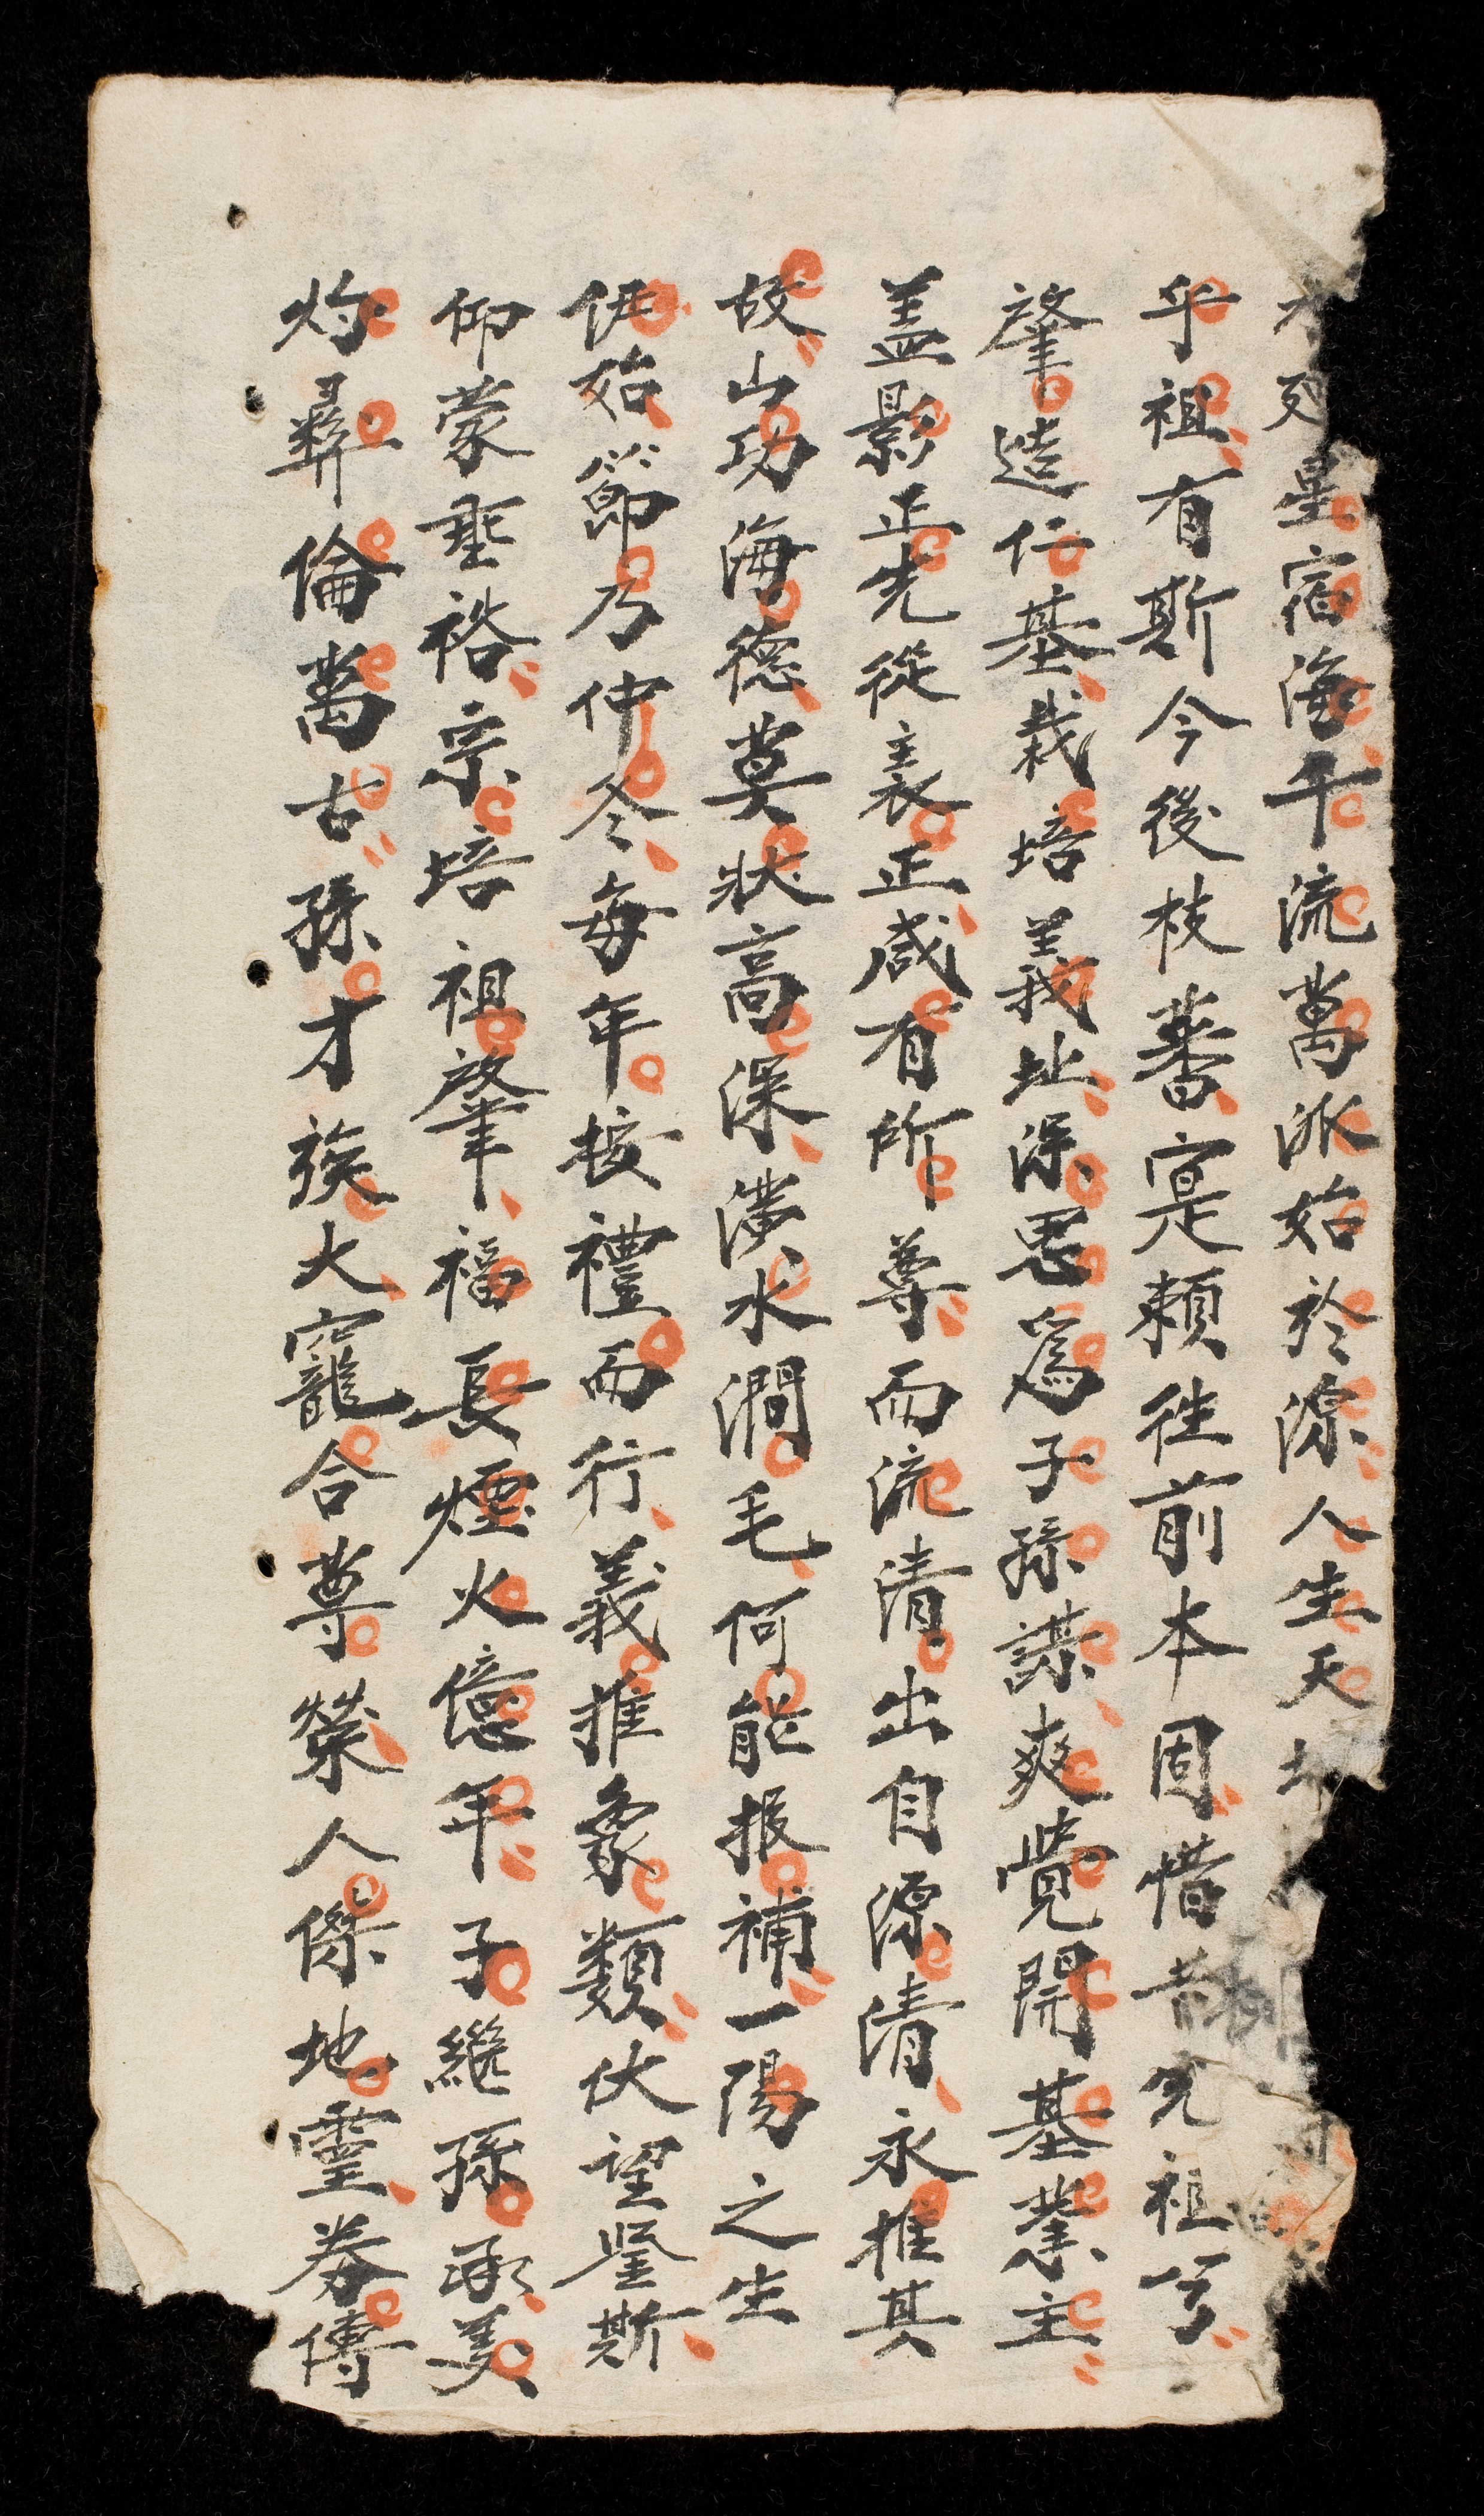 星宿海千流萬派始於源人生天
乎祖有斯今後枝蕃寔賴徃前本固惜昔先祖公
肇造仁基栽培義址深思爲子孫謀爽覺開基業主
盖影正先從表正咸有所尊而流清出自源清永推其
故山功海德莫狀高深潢水澗毛何能报補一陽之生
伊始節乃仲冬每年按禮而行義推象類伏望鑒斯
仰蒙垂裕宗培祖肇福長煙火億年子繼孫承美
灼彛倫萬古孫才族大寵合尊榮人傑地靈券傳